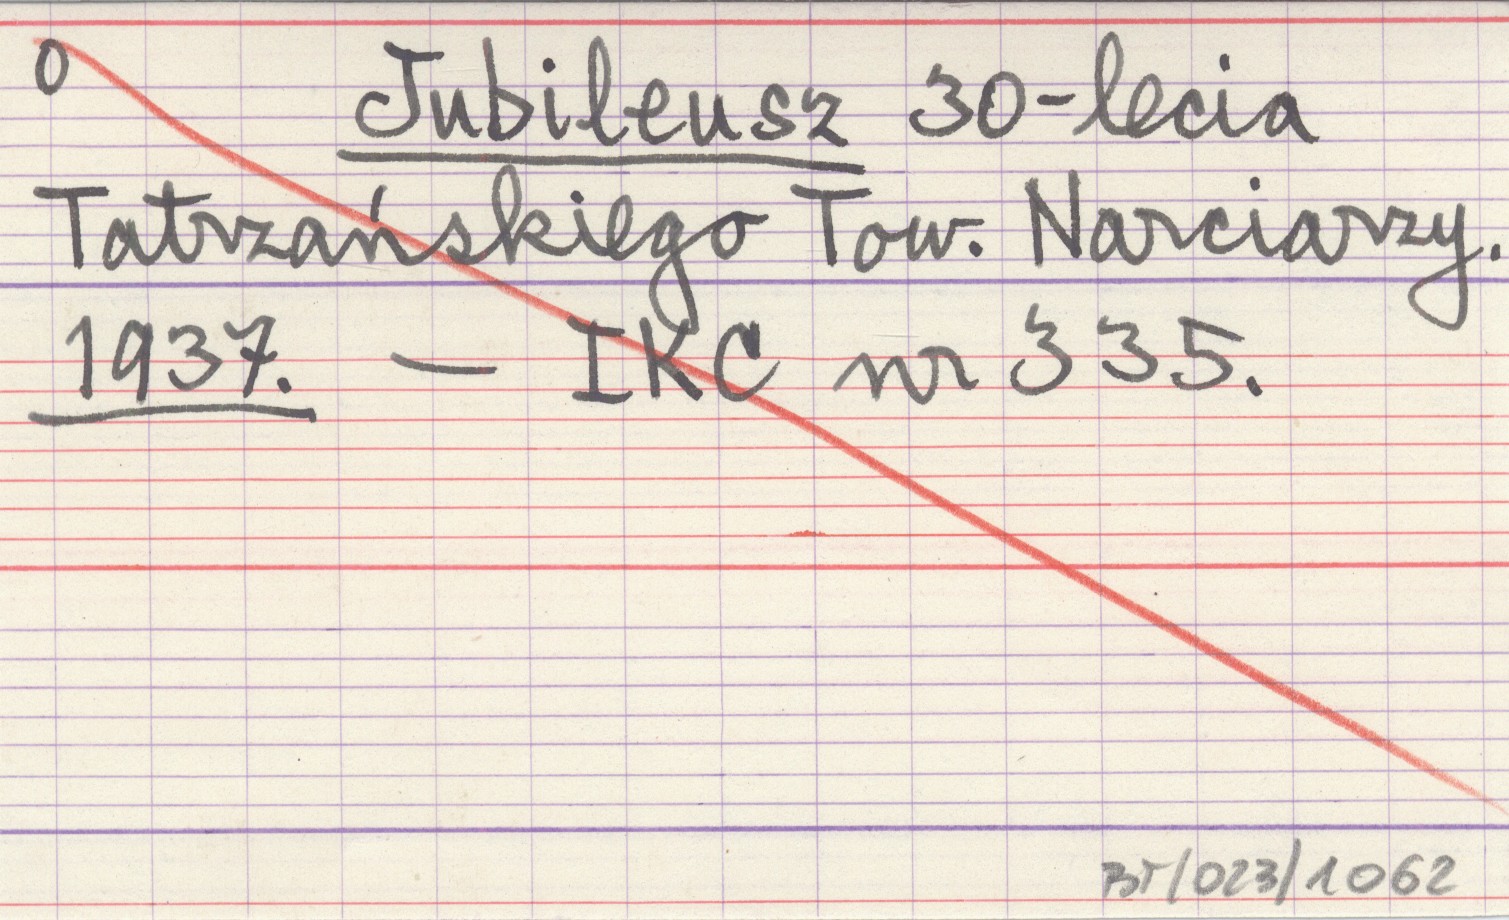 0 Jubileusz 30-lecia
Tatrzańskiego Tow. Narciarzy.
1937. — IKC nr 335.
BT/023/1062